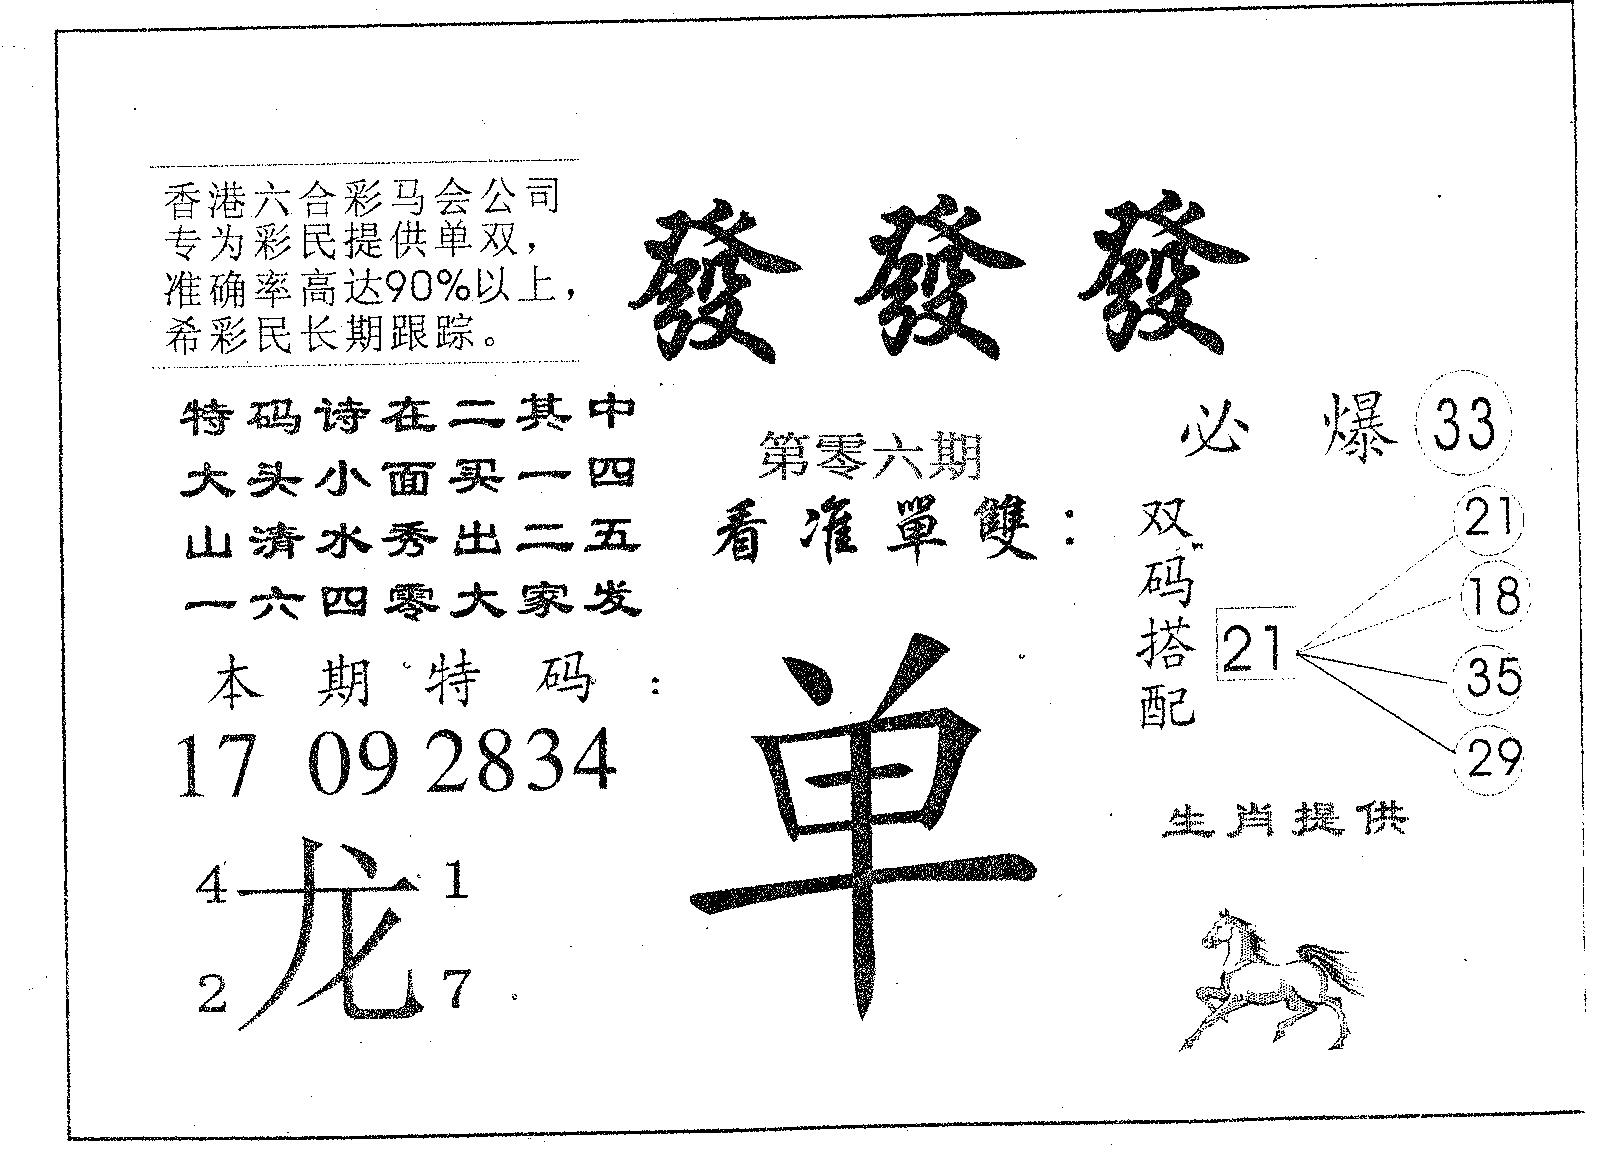 香港六合彩马会公司
专为彩民提供单双，
准确率高达90%以上，
希彩民长期跟踪。
發 發 發
特码诗在二其中
大头小面买一四
山清水秀出二五
一六四零大家发
第零六期
看准單雙：
单
必 爆 33
双码搭配
21
21
18
35
29
本期特码：
17 09 28 34
4 1
龙
2 7
生肖提供